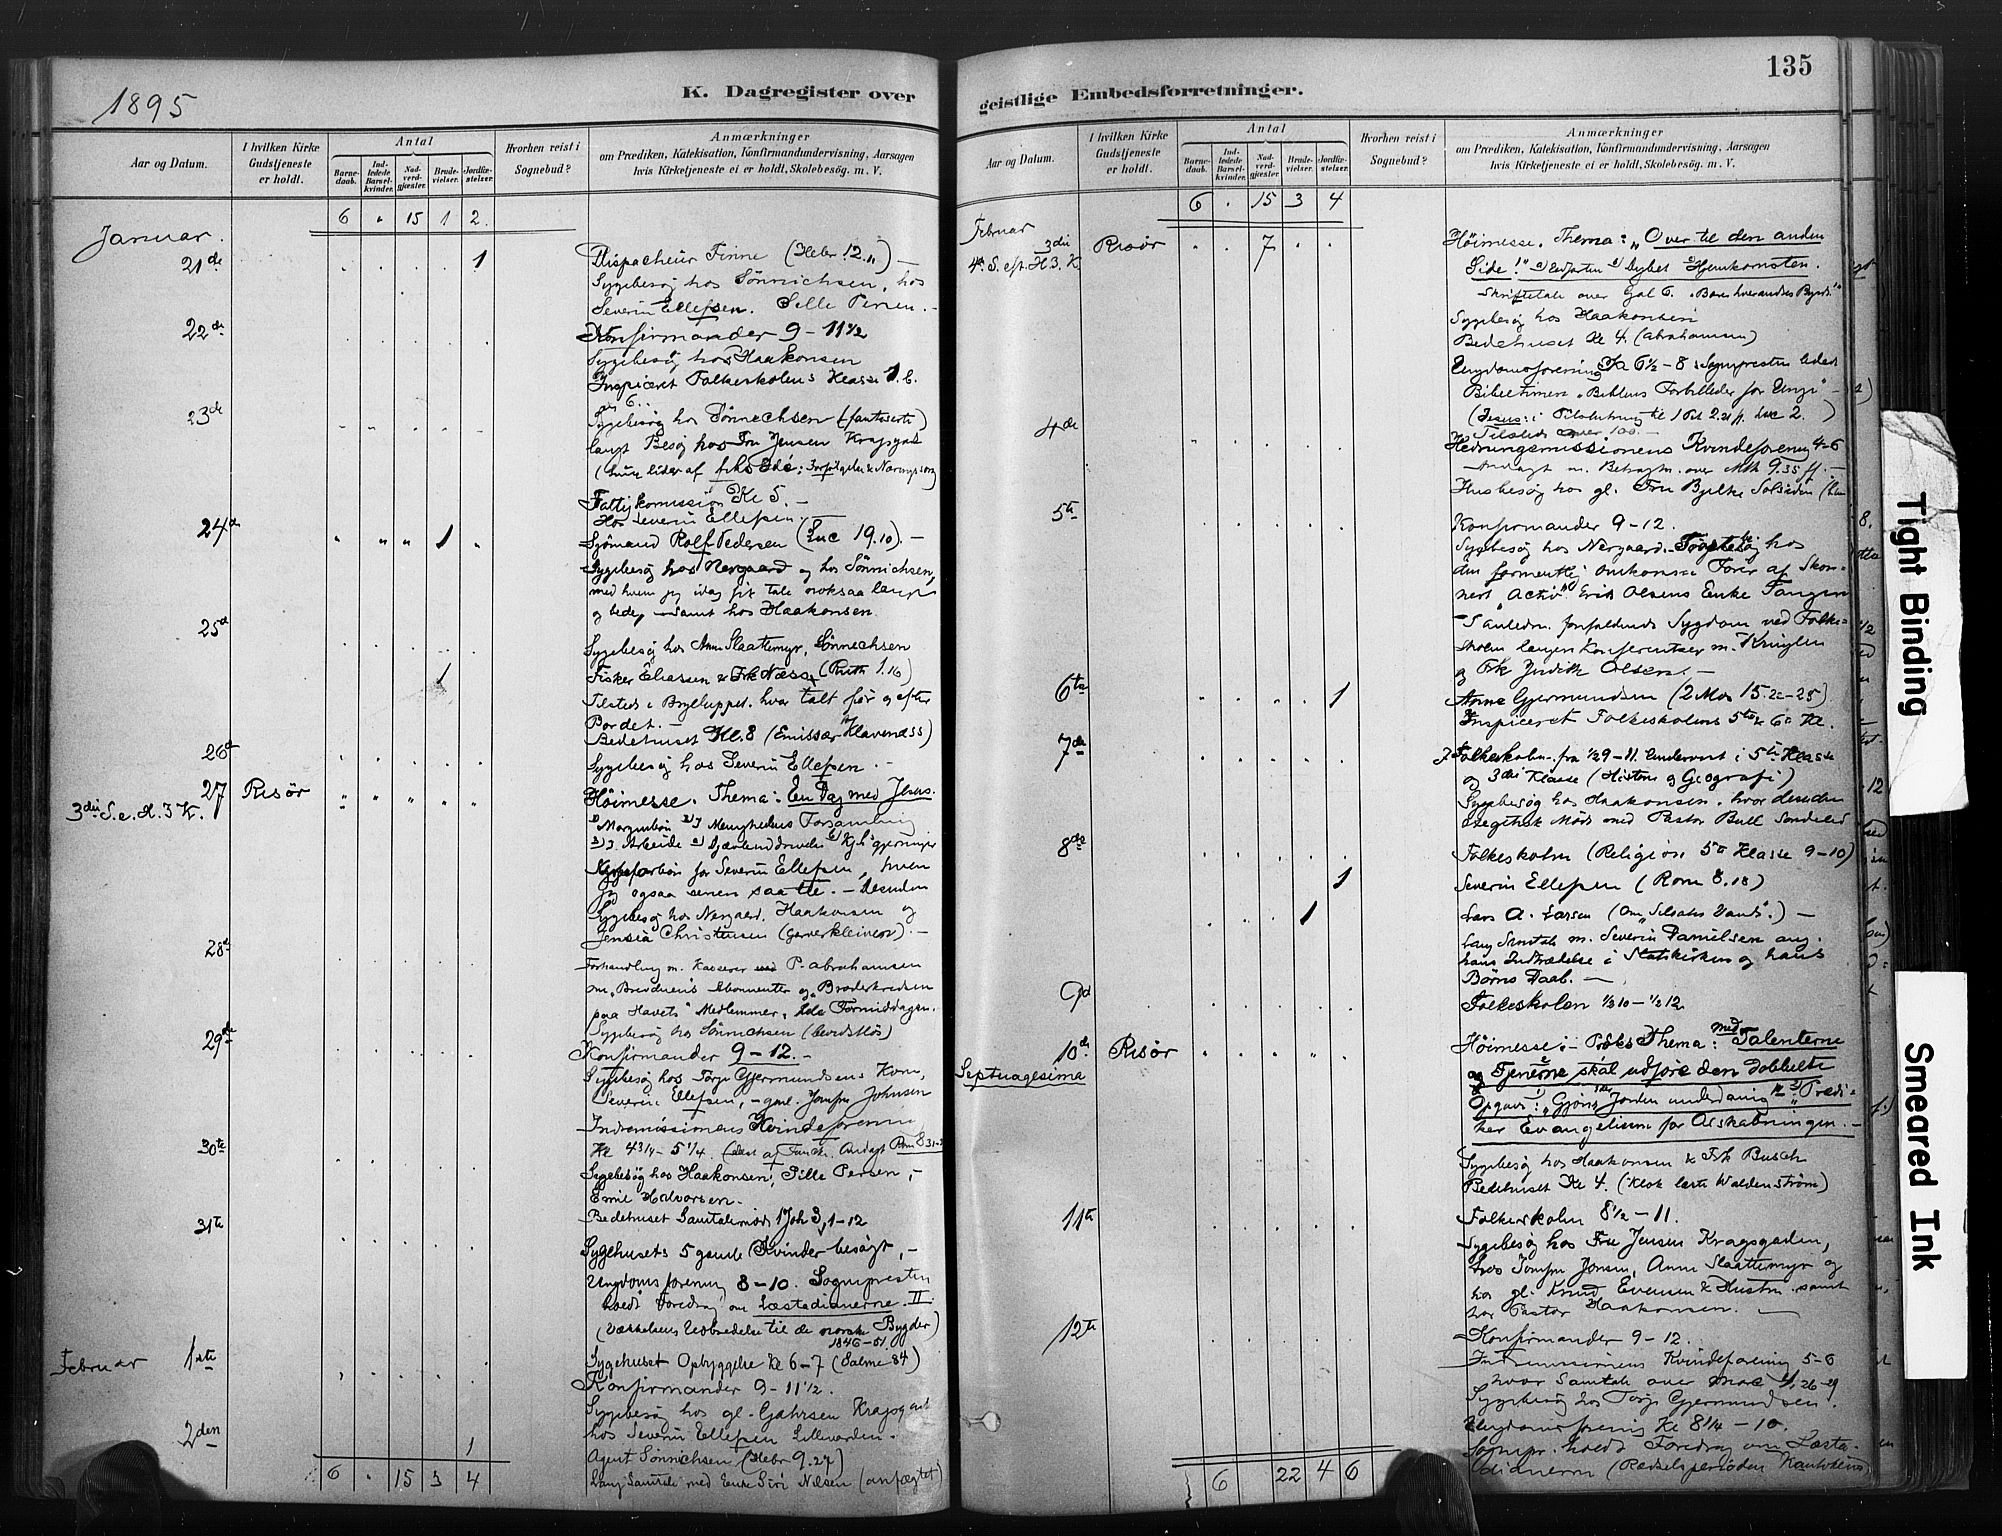 1895
K. Dagregister over
Aar og Datum.
I hvilken Kirke
Gudstjeneste
er holdt.
Antal
Barne-
daab.
Ind-
ledede
Barsel-
kvinder.
Nad-
verd-
gjæster.
Brude-
vielser.
Jordfæ-
stelser.
Hvorhen reist i
Sognebud?
Anmærkninger
om Prædiken, Katekisation, Konfirmandundervisning, Aarsagen
hvis Kirketjeneste ei er holdt, Skolebesøg. m. V.
6 " 15 1 2
Januar.
21de 1 Dispacheur Finne (Hebr 12.11) —
Sygebesøg hos Sönnichsen, hos
Severin Ellefsen. Sille Persen. -
22de Konfirmander 9-11½
Sygebesøg hos Haakonsen
Inspiceret Folkeskolens Klasse 1. b.
23de Sygebesøg hos Sönnechsen (fantiserte)
langt Besøg hos Fru Jensen Kragsgade
Fattigkomission Kl 5. -
Hos Severin Ellefsen.
24d 1 Sjömand Rolf Pedersen (Luc 19.10). —
Sygebesøg hos Nergaard og hos Sönnichsen,
med hvem jeg idag fik tale noksaa længe
og bede, samt hos Haakonsen.
25d Sygebesøg hos Anne Slaattemyr, Sönnechsen
1 Fisker Eliassen & Frk Næss (Ruth 1.16)
Tilsted i Brylluppet, hvor talt før og efter
Bordet. —
Bedehuset Kl. 8 (Emissær Havenæss)
26d Sygebesøg hos Severin Ellefsen. -
27 Risör Höimesse. Thema: En Dag med Jesus.
3die S. e. H. 3 K. 1) Morgenbön 2) I Menighedens Forsamling
Kirkeforbön for Severin Ellefsen, hvem
jeg ogsaa senere saa til. - Desuden
Sygebesøg hos Nergaard, Haakonsen og
Jensia Christensen (Garverkleiven). -
28d Forhandling m. Kasserer P. Abrahamsen
om "Brodrens Abonnenter og "Broderkredsen
paa Havets" Medlemmer, hele Formiddagen.
Sygebesøg hos Sönnichsen (bevidstlös)
29de Konfirmander 9-12. -
Sygebesøg hos Torje Gjermundsens Kone,
Severin Ellefsen, - gml. Jomfru Johnsen
Indremissionens Kvindeforening
Kl 4¾ - 5¼. Andagt Rom 8 31-
30te Sygebesøg hos Haakonsen, Sille Persen, -
Emil Halvorsen.
Bedehuset Samtalemøde 1 Joh 3, 1-12
31te Sygehusets 5 gamle Kvinder besögt, -
Ungdomsforening 8-10. Sognepresten
holdt Foredrag om Læstadianerne. II.
(Vækkelsens Udbredelse til de norske Bygder)
1846-51
Februar 1ste Sygehuset Opbyggelse Kl 6-7 (Salme 84)
Konfirmander 9-11½.
Sygebesøg hos gl. Gahrsen Kragsgade
2den hos Severin Ellefsen Lillevarden.
1 Agent Sönnichsen (Hebr 9.27)
6 " 15 3 4 Lang Samtale med Enke Siri Nilsen (anfægtet)
135
geistlige Embedsforretninger.
Aar og Datum.
I hvilken Kirke
Gudstjeneste
er holdt.
Antal
Barne-
daab.
Ind-
ledede
Barsel-
kvinder.
Nad-
verd-
gjæster.
Brude-
vielser.
Jordfæ-
stelser.
Hvorhen reist i
Sognebud?
Anmærkninger
om Prædiken, Katekisation, Konfirmandundervisning, Aarsagen
hvis Kirketjeneste ei er holdt, Skolebesøg. m. V.
6 . 15 3 4
Februar
3die Risör 7 Höimesse. Thema: "Over til den anden
4de S. eft. H. 3. K. Side!" a) Udfarten b) Dybet c) Hjemkomsten.
Skriftetale over Gal 6. "Bærer hverandres Byrder"
Sygebesøg hos Haakonsen
Bedehuset Kl 4 (Abrahamsen)
Ungdomsforening Kl 6½-8 Sognepresten leded
Bibeltimen "Biblens Forbilleder for Unge" -
(Jesus: i Tilslutning til 1 Pet 2.21 ff. Luc 2.)
Tilstede over 100. -
4de Hedningemissionens Kvindeforening 4-6
Andagt m. Betragtn. over Mth 9.35 ff. -
Husbesøg hos gl. Fru Bjelke Solsiden
5te Konfirmander 9-12.
Sygebesøg hos Nergaard. Trøstebesøg hos
den formentlig omkomne Fører af Skon-
nert "Activ" Erik Olsens Enke Tangen
- I anledn. forfaldends Sygdom ved Folke-
skolen længere Konferentser m. Krüglen
og Frk Judith Olsen. -
6te 1 Anne Gjermundsen (2 Mos 15.22-25)
Inspiceret Folkeskolens 5te & 6te Kl.
7de I Folkeskolen fra ½9-11. Undervist i 5te Klasse
og 3die Klasse (Historie og Geografi)
Sygebesøg hos Haakonsen, hvor desuden
exegetisk Möde med Pastor Bull Söndeled
8de Folkeskolen (Religion 5te Klasse 9-10)
1 Severin Ellefsen (Rom 8.18)
1 Lars A. Larsen (Om "Siloahs Vande".) —
Lang Samtale m. Severin Danielsen ang.
hans Indtrædelse i Statskirken og hans
Børns Daab. -
9d Folkeskolen ½10-½12
10de Risör Höimesse: - Thema: Med Talenterne
Septuagesima skal Tjenerne udføre den dobbelte
Opgave: 1) "Gjører Jorden underdanig" 2) "Prædi-
ker Evangelium for al Skabningen. -
Sygebesøg hos Haakonsen & Frk Busch
Bedehuset Kl 4. (Klok læste Waldenström)
11te Folkeskolen 8½-11.
Sygebesøg hos Fru Jensen Kragsgaden,
hos Jomfru Jonsen, Anne Slaattemyr og
hos gl. Knud Evensen & Hustru samt
hos Pastor Haakonsen. —
12te Konfirmander 9-12.
Indremissionens Kvindeforening 5-6
hvor Samtale over Marc 4, 26-29
Sygebesøg hos Torje Gjermundsen.
Ungdomsforening Kl 8¼-10.
Sognepr. holdt Foredrag om Læsta-
6 22 4 6 dianerne (Rædselsperioden Kautokeino
Tight Binding
Smeared Ink